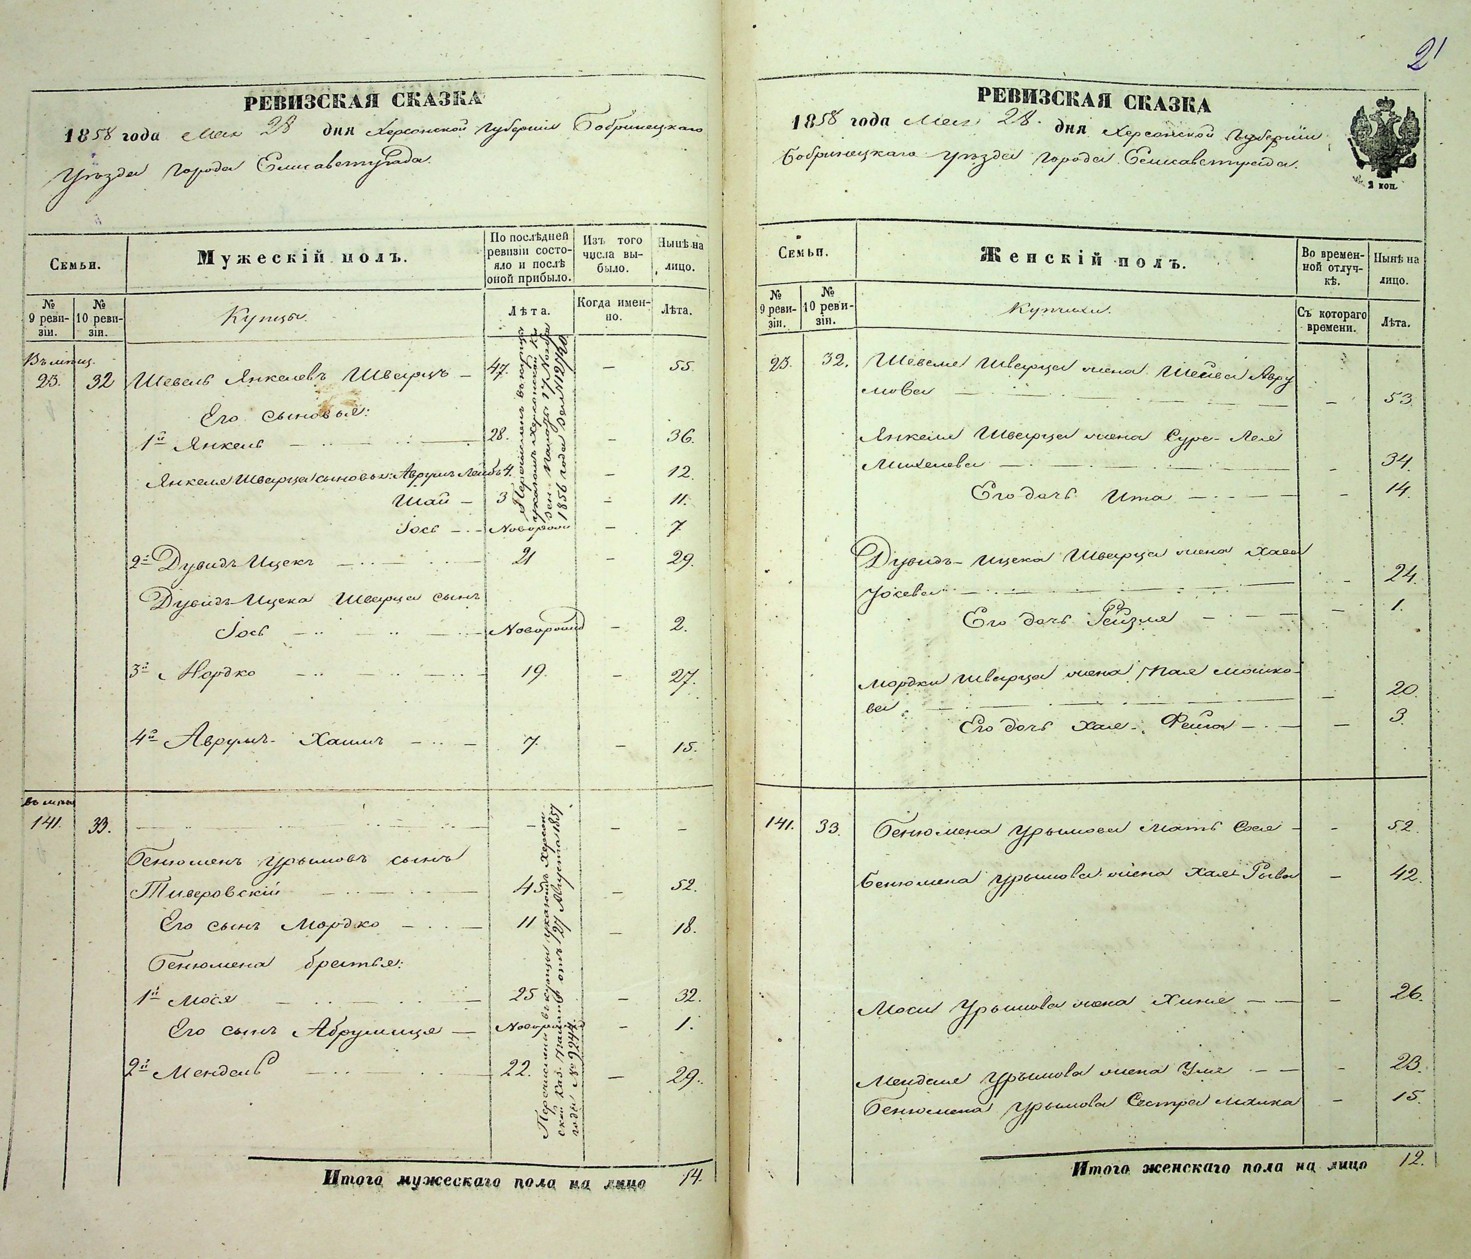 РЕВИЗСКАЯ СКАЗКА
1858 года Мая 28 дня Херсонской Губерніи Бобринецкаго
Уѣзда Города Елисаветграда.
Семьи.
Мужескій полъ.
По послѣдней ревизіи состояло и послѣ оной прибыло.
Изъ того числа выбыло.
Нынѣ на лицо.
№ 9 ревизіи.
№ 10 ревизіи.
Купцы.
Лѣта.
Когда именно.
Лѣта.
Въ мѣщ.
23. 32 Шевель Янкелевъ Шварцъ — 47. — 55.
Его сыновья:
1й Янкель — 28. — 36.
Янкеля Шварца сыновья: Аврумъ Лейбъ 4. 12.
Шай — 3 — 11.
Іось — Новорожд — 7
2й Дувидъ Ицекъ — 21 — 29.
Дувидъ-Ицека Шварца сынъ
Іось — Новорожд — 2.
3й Мордко — 19. — 27.
4й Аврумъ-Хаимъ — 7. — 15.
1856 года за № 112740
141. 33. — — — —
Бенюменъ Урымовъ сынъ
Тиверовскій — 45 — 52.
Его сынъ Мордко — 11 — 18.
Бенюмена братья:
1й Мося — 25 — 32.
Его сынъ Абрумица — Новор — 1.
2й Мендель — 22. — 29.
года № 9244.
Итого мужескаго пола на лицо 14.
21
РЕВИЗСКАЯ СКАЗКА
1858 года Мая 28. дня Херсонской Губерніи
Бобринецкаго Уѣзда Города Елисаветграда.
2 коп.
Семьи.
Женскій полъ.
Во временной отлучкѣ.
Нынѣ на лицо.
№ 9 ревизіи.
№ 10 ревизіи.
Купчихи.
Съ котораго времени.
Лѣта.
23. 32. Шевеля Шварца жена Шейва Авру
мова — — 53.
Янкеля Шварца жена Суре-Лея
Михелева — — 34.
Его дочь Ита — — 14.
Дувидъ-Ицека Шварца жена Хава
Іосева — — 24.
Его дочь Рейзля — — 1.
Мордки Шварца жена Мошко-
ва — — 20.
Его дочь Хая-Фейга — — 3.
141. 33. Бенюмена Урымова мать Сося — — 52.
Бенюмена Урымова жена Хая Рыва — 42.
Моси Урымова жена Хиня — — 26.
Менделя Урымова жена Умя — — 23.
Бенюмена Урымова сестра Малка — 15.
Итого женскаго пола на лицо 12.